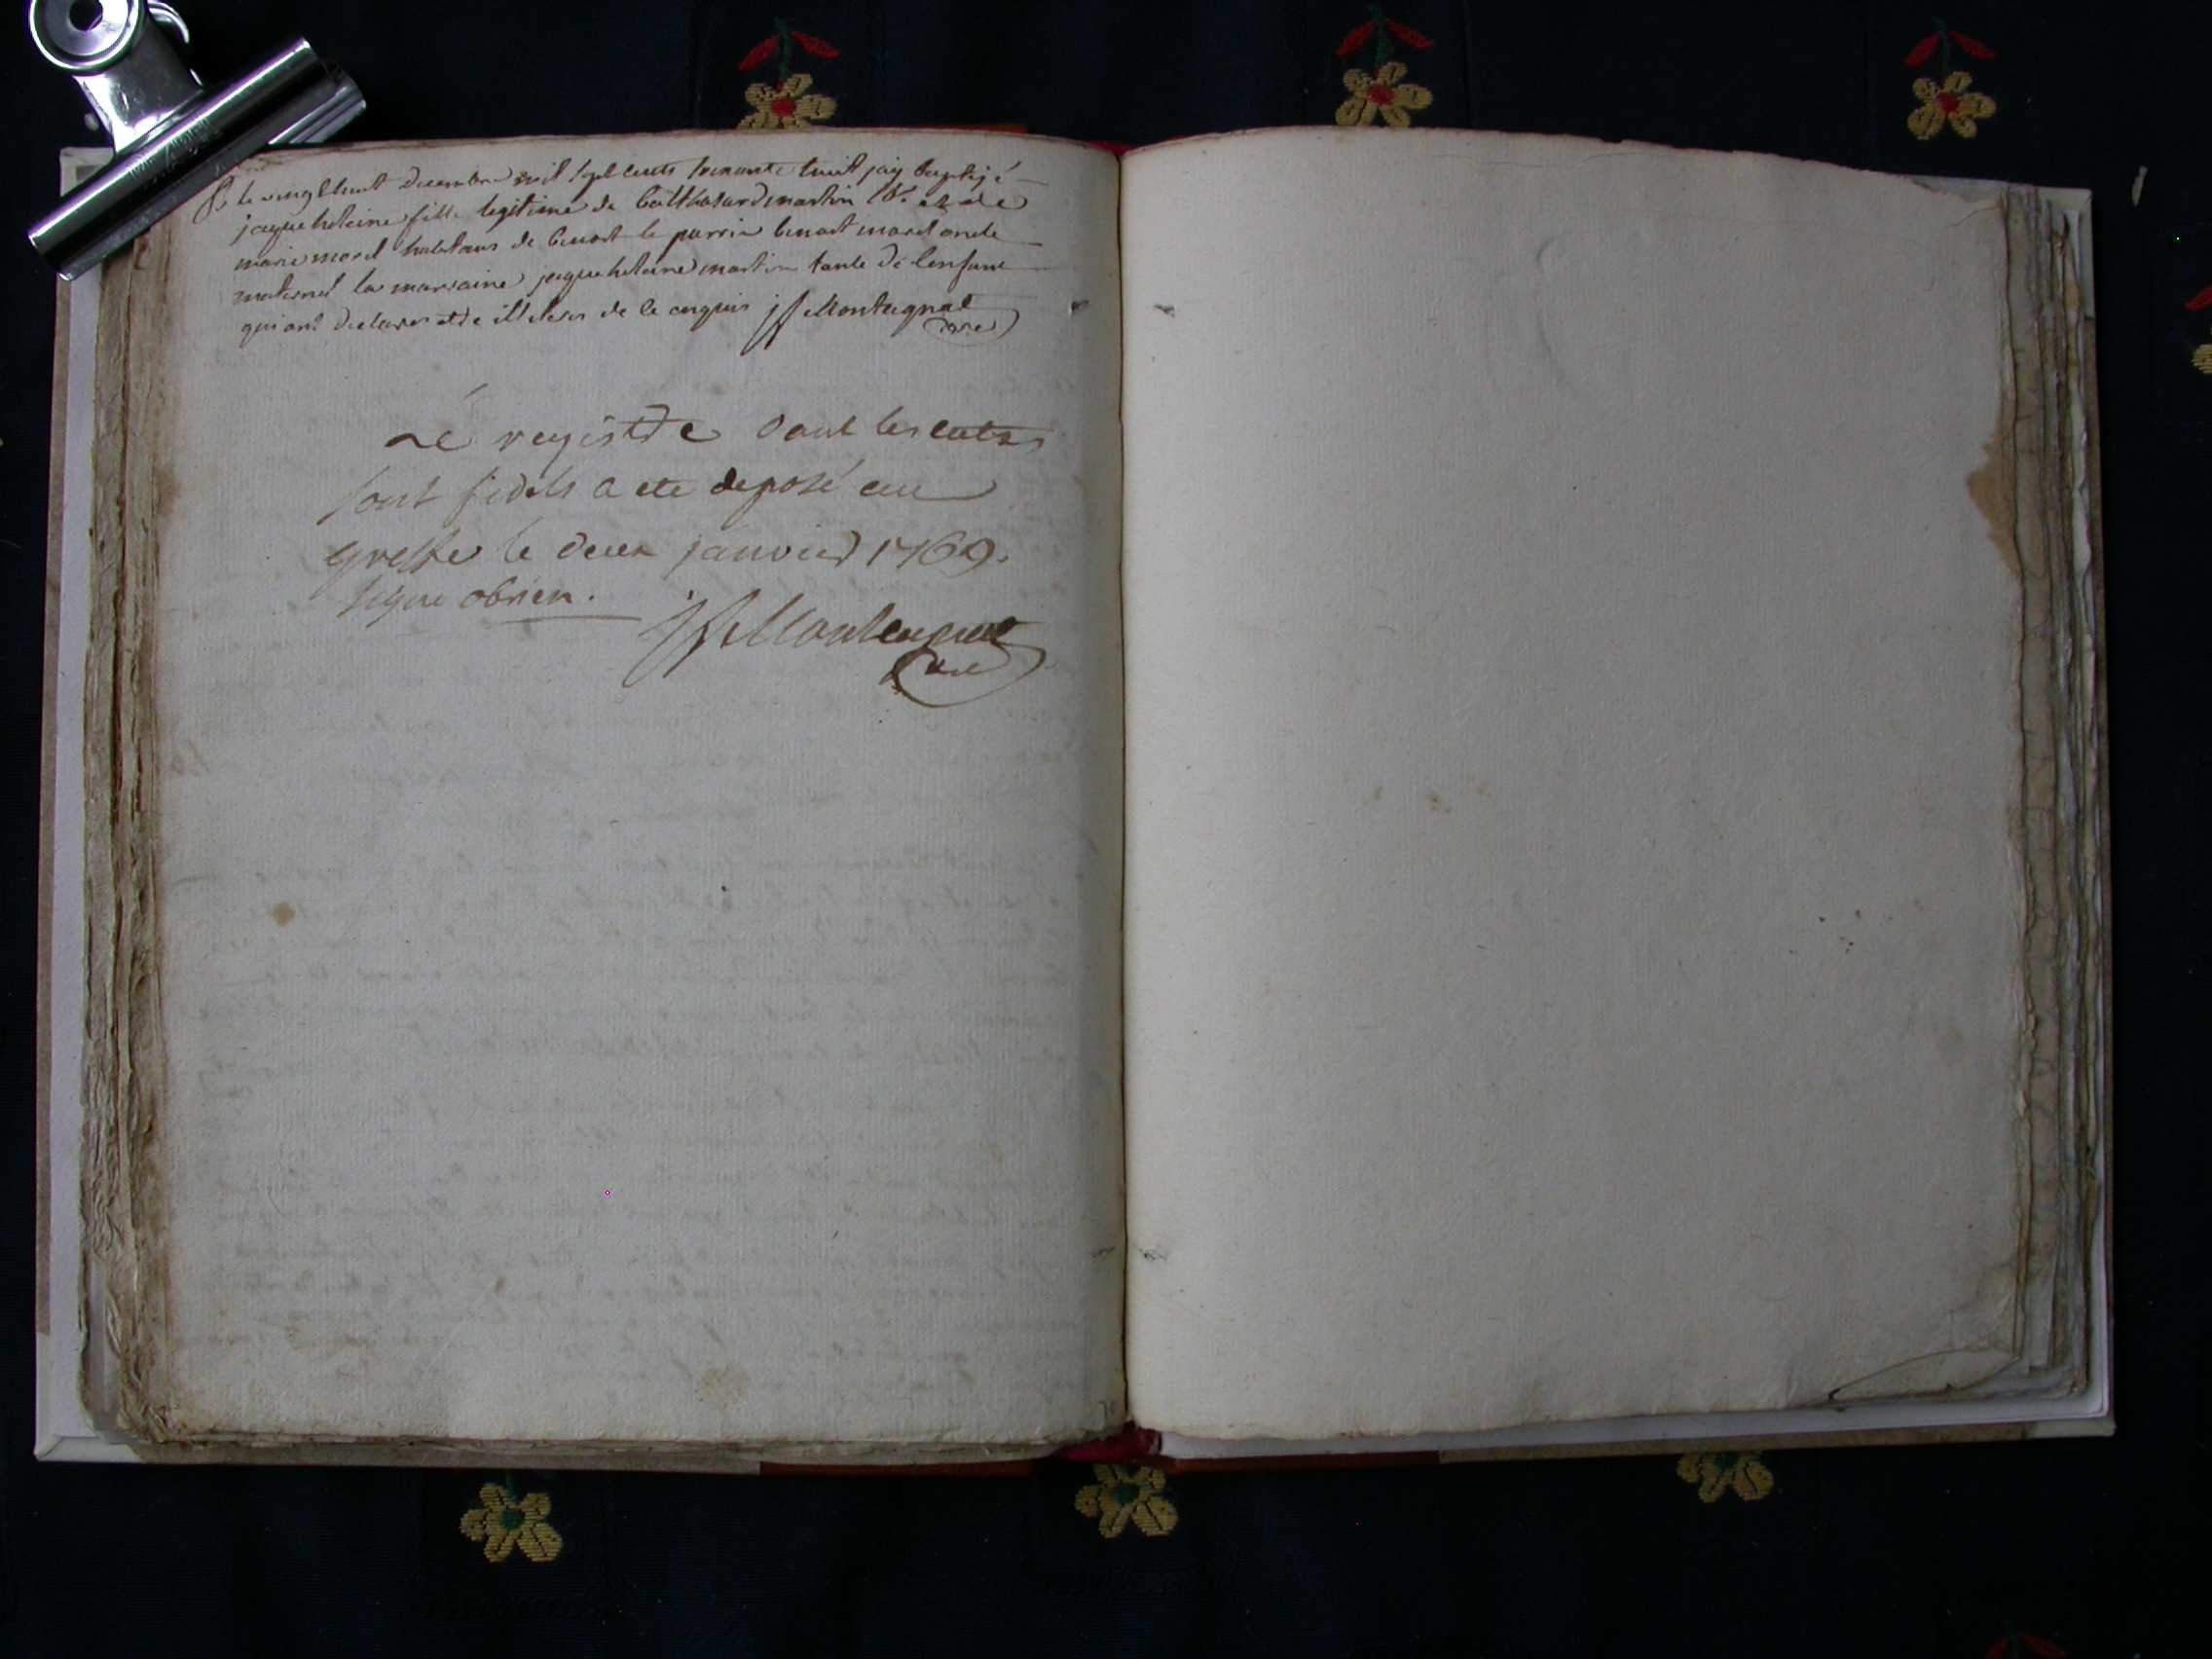 B le vingt huit decembre mil sept cents soixante huit jay baptisé
jaque heleine fille legitime de balthasard martin Vr. et de
marie morel habitans de benost le parrin benoit morel oncle
maternel la marraine jaque heleine martin tante de lenfant
qui ont declares etre illeteres de ce enquis jf Montagnat
vre
Le registre dont les extes
sont fidels a ete deposé au
greffe le deux janvier 1769.
signé obrien.
jf Montagnat
vre